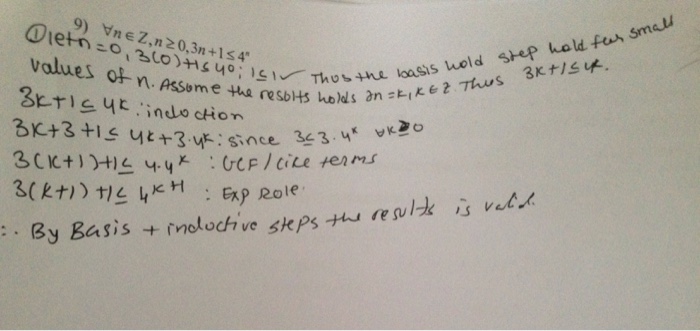 9) ∀n∈Z, n≥0, 3n+1≤4ⁿ
① let n=0, 3(0)+1≤4⁰; 1≤1✓ Thus the basis hold step hold for small
values of n. Assume the results holds ∂n=k, k∈Z. Thus 3k+1≤4ᵏ.
3k+1≤4ᵏ : induction
3k+3+1≤4ᵏ+3·4ᵏ : since 3≤3·4ᵏ ∀k≥0
3(k+1)+1≤4·4ᵏ : GCF/like terms
3(k+1)+1≤4ᵏ⁺¹ : Exp Role.
∴ By Basis + inductive steps the results is valid.